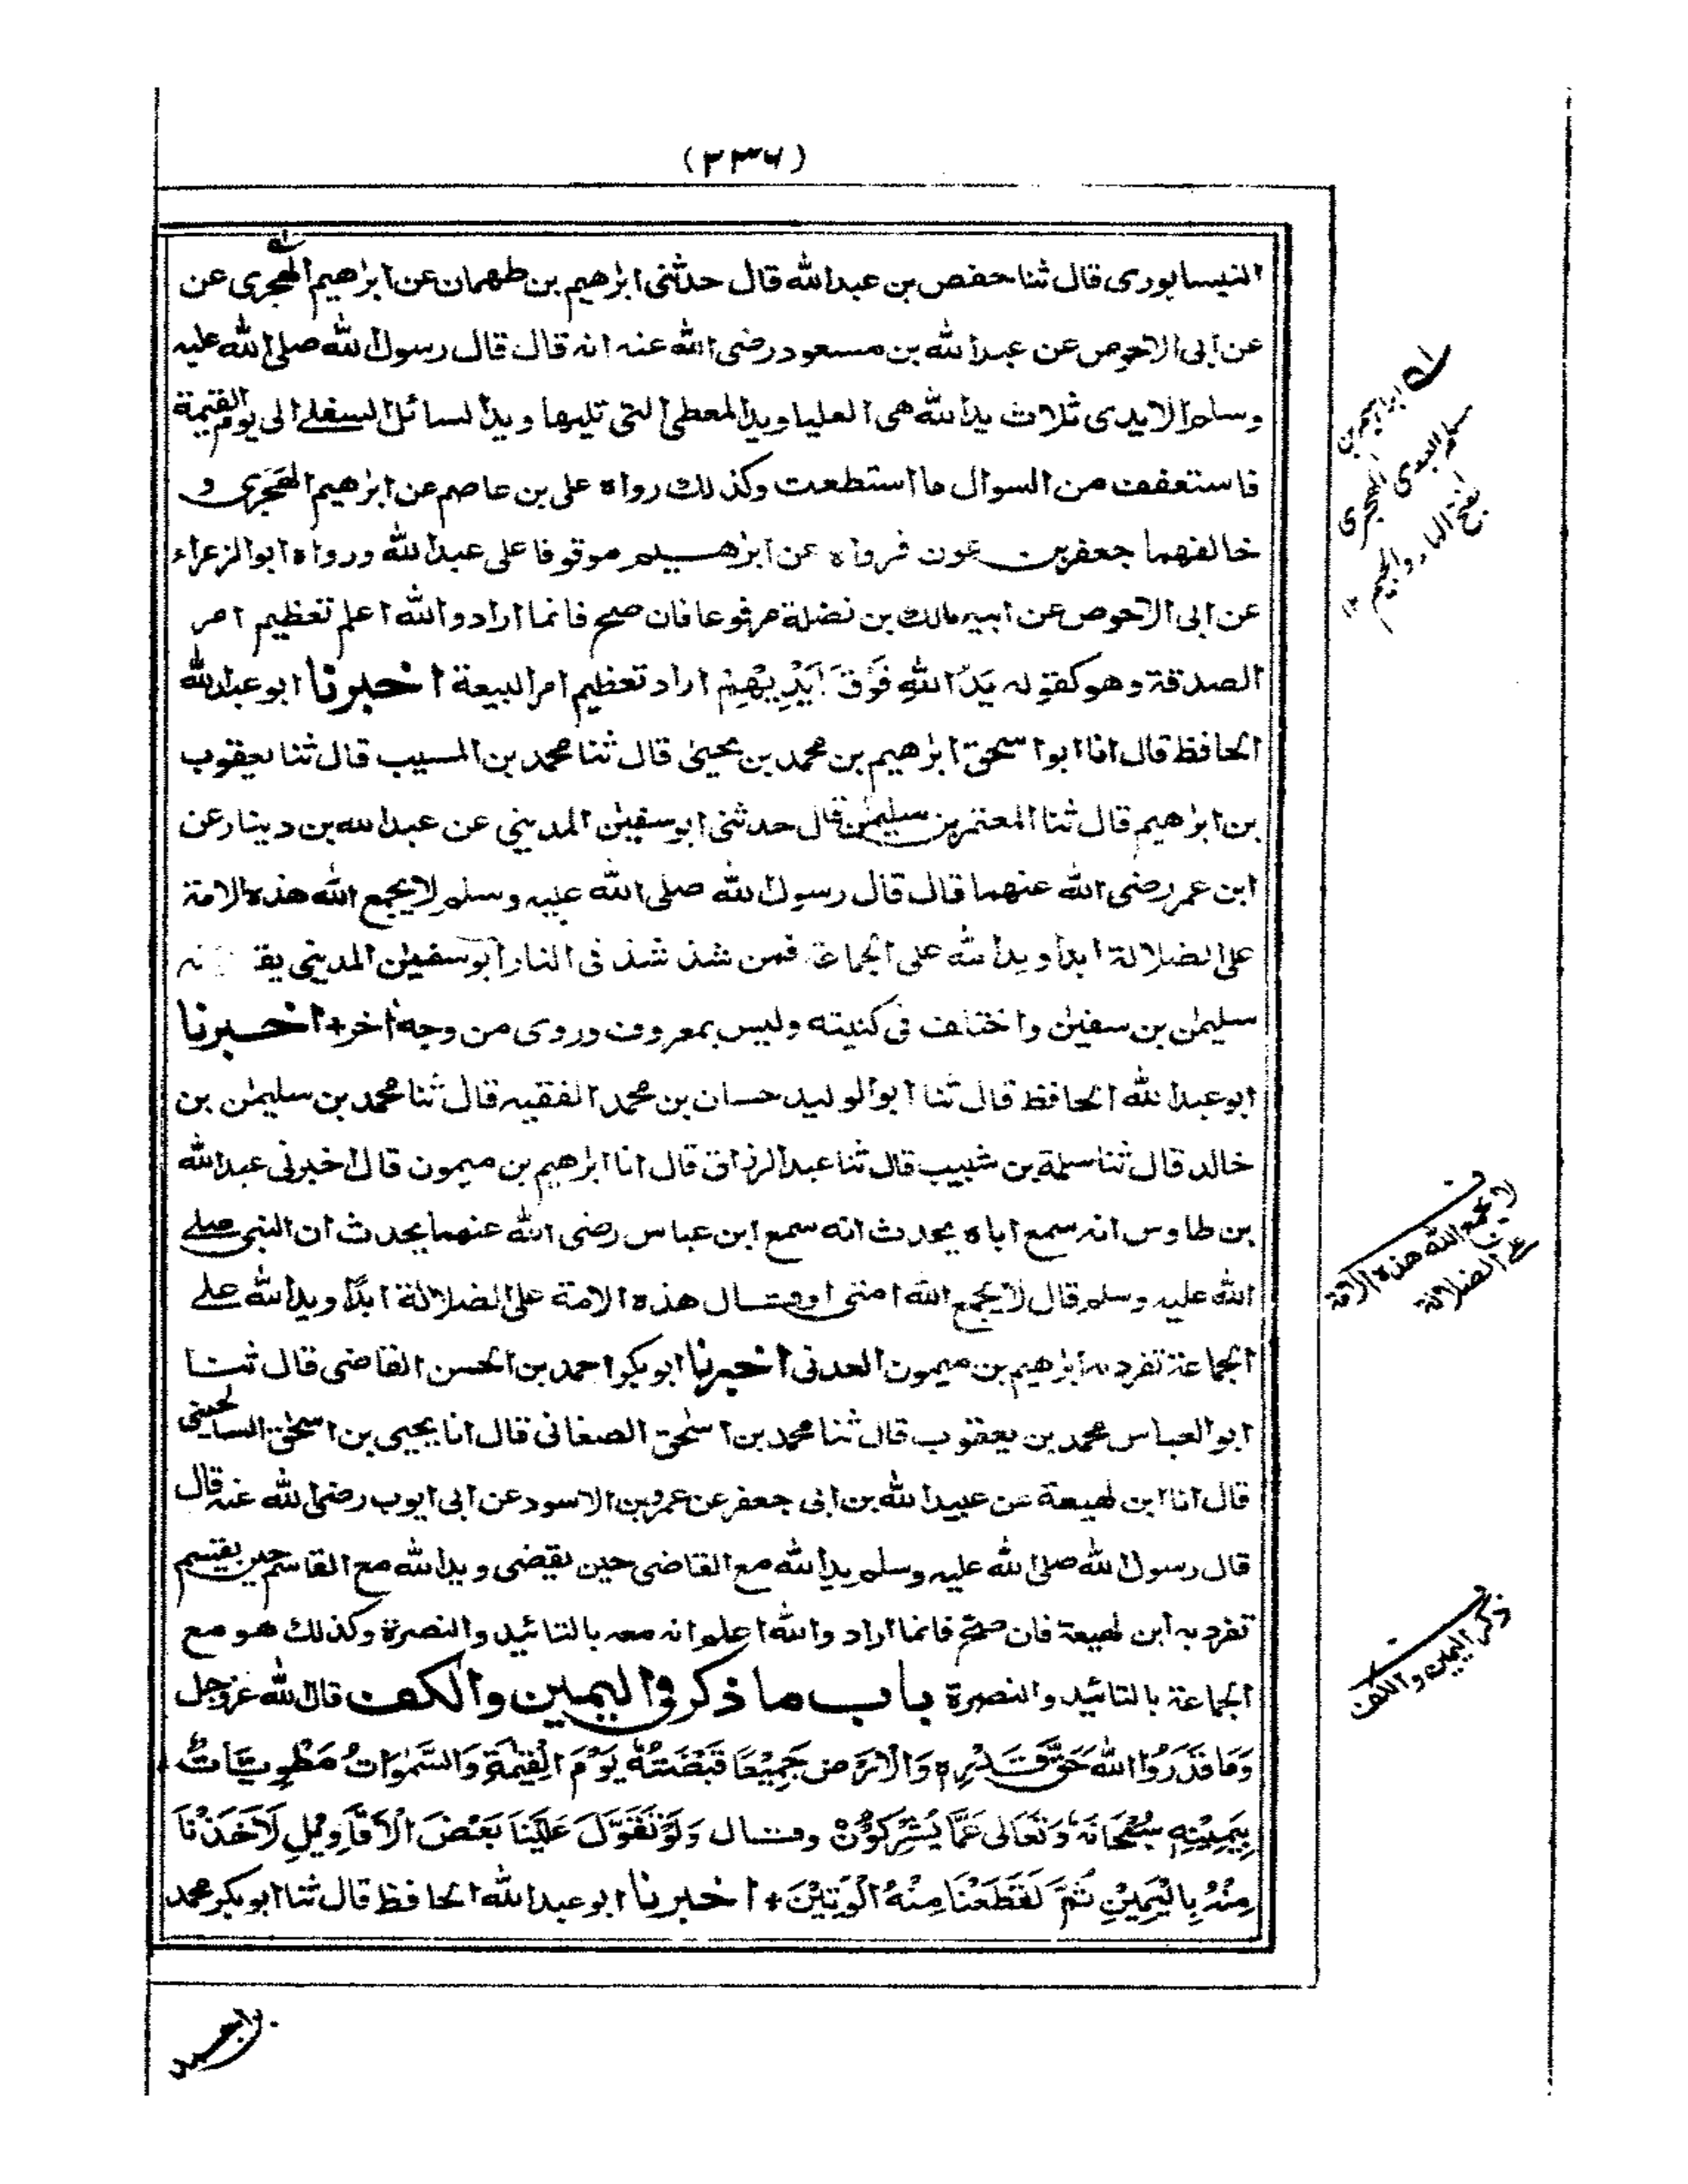 (٢٣٦)
النيسابوری قال ثنا حفص بن عبدالله قال حدثنی ابرٰهيم بن طهمان عن ابرٰهيم الهجری عن
عن ابی الاحوص عن عبدالله بن مسعود رضی الله عنه انه قال قال رسول الله صلی الله عليه
وسلم الايدی ثلاث يدالله هی العليا ويدالمعطی التی تليها ويدالسائل السفلے الی يوم القيمة
فاستعفف من السوال ما استطعت وكذلك رواه علی بن عاصم عن ابرٰهيم الهَجَری و
خالفهما جعفر بن عون فرواه عن ابرٰهيم موقوفا علی عبدالله ورواه ابوالزعراء
عن ابی الاحوص عن ابيه مالك بن نضلة مرفوعا فان صح فانما اراد والله اعلم تعظيم امر
الصدقة وهو كقوله يَدُ اللهِ فَوْقَ اَيْدِيْهِمْ اراد تعظيم امر البيعة اخبرنا ابوعبدالله
الحافظ قال انا ابو اسحٰق ابرٰهيم بن محمد بن يحيیٰ قال ثنا محمد بن المسيب قال ثنا يعقوب
بن ابرٰهيم قال ثنا المعتمر بن سليمٰن قال حدثنی ابوسفيٰن المدينی عن عبدالله بن دينار عن
ابن عمر رضی الله عنهما قال قال رسول الله صلی الله عليه وسلم لايجمع الله هذه الامة
علی الضلالة ابدا ويدالله علی الجماعة فمن شذ شذ فی النار ابوسفيٰن المدينی يقـ ـ ـه
سليمٰن بن سفيٰن واختلف فی كنيته وليس بمعروف وروی من وجه اٰخر + اخبرنا
ابوعبدالله الحافظ قال ثنا ابوالوليد حسان بن محمد الفقيه قال ثنا محمد بن سليمٰن بن
خالد قال ثنا سلمة بن شبيب قال ثنا عبدالرزاق قال انا ابرٰهيم بن ميمون قال اخبرنی عبدالله
بن طاوس انه سمع اباه يحدث انه سمع ابن عباس رضی الله عنهما يحدث ان النبی صلے
الله عليه وسلم قال لايجمع الله امتی او قال هذه الامة علی الضلالة ابدًا ويدالله علے
الجماعة تفرد به ابرٰهيم بن ميمون العدنی اخبرنا ابوبكر احمد بن الحسن القاضی قال ثنا
ابوالعباس محمد بن يعقوب قال ثنا محمد بن اسحٰق الصغانی قال انا يحيی بن اسحٰق السالحينی
قال انا ابن لهيعة عن عبيدالله بن ابی جعفر عن عمرو بن الاسود عن ابی ايوب رضی الله عنه قال
قال رسول الله صلی الله عليه وسلم يدالله مع القاضی حين يقضی ويدالله مع القاسم حين يقسم
تفرد به ابن لهيعة فان صح فانما اراد والله اعلم انه معه بالتائيد والنصرة وكذلك هو مع
الجماعة بالتائيد والنصرة باب ما ذكر فی اليمين والكف قال الله عزوجل
وَمَا قَدَرُوا اللهَ حَقَّ قَدْرِهٖ وَالْاَرْضُ جَمِيْعًا قَبْضَتُهٗ يَوْمَ الْقِيٰمَةِ وَالسَّمٰوَاتُ مَطْوِيَّاتٌ
بِيَمِيْنِهٖ سُبْحَانَهٗ وَتَعَالٰی عَمَّا يُشْرِكُوْنَ وقال وَلَوْ تَقَوَّلَ عَلَيْنَا بَعْضَ الْاَقَاوِيْلِ لَاَخَذْنَا
مِنْهُ بِالْيَمِيْنِ ثُمَّ لَقَطَعْنَا مِنْهُ الْوَتِيْنَ + اخبرنا ابوعبدالله الحافظ قال ثنا ابوبكر محمد
ابراهيم بن
مسلم العبدی الهجری
بفتح الهاء والجيم ١٢
لايجمع الله هذه الامة
علے الضلالة
ذكر اليمين والكف